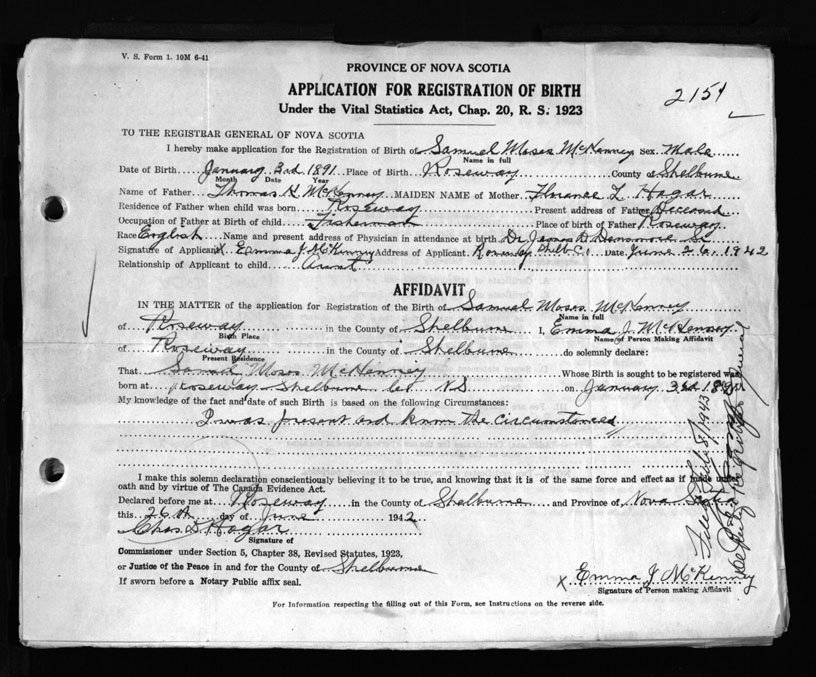 V. S. Form 1. 10M 6-41
PROVINCE OF NOVA SCOTIA
APPLICATION FOR REGISTRATION OF BIRTH
Under the Vital Statistics Act, Chap. 20, R. S. 1923
2154
TO THE REGISTRAR GENERAL OF NOVA SCOTIA
I hereby make application for the Registration of Birth of Samuel Moses McKenney Sex Male
Name in full
Date of Birth January 3rd 1891 Place of Birth Roseway County Shelburne
Month Date Year
Name of Father Thomas H. McKenney MAIDEN NAME of Mother Florance L Hagar
Residence of Father when child was born Roseway Present address of Father Deceased
Occupation of Father at Birth of child Fisherman Place of birth of Father Roseway
Race English Name and present address of Physician in attendance at birth Dr
Signature of Applicant X Emma J. McKenney Address of Applicant Roseway Shelb Co. Date June 26, 1942
Relationship of Applicant to child Aunt
AFFIDAVIT
IN THE MATTER of the application for Registration of the Birth of Samuel Moses McKenney
Name in full
of Roseway in the County of Shelburne I, Emma J. McKenney
Birth Place Name of Person Making Affidavit
of Roseway in the County of Shelburne do solemnly declare:
Present Residence
That Samuel Moses McKenney Whose Birth is sought to be registered was
born at Roseway Shelburne Co NS on January 3rd 1891
My knowledge of the fact and date of such Birth is based on the following Circumstances:
I was present and know the circumstances
I make this solemn declaration conscientiously believing it to be true, and knowing that it is of the same force and effect as if made under
oath and by virtue of The Canada Evidence Act.
Declared before me at Roseway in the County of Shelburne and Province of Nova Scotia
this 26th day of June 1942
Chas D Hagar
Signature of
Commissioner under Section 5, Chapter 38, Revised Statutes, 1923,
or Justice of the Peace in and for the County of Shelburne
If sworn before a Notary Public affix seal.
X Emma J. McKenney
Signature of Person making Affidavit
For Information respecting the filling out of this Form, see Instructions on the reverse side.
Filed Feb 8/1943
Deputy Registrar General